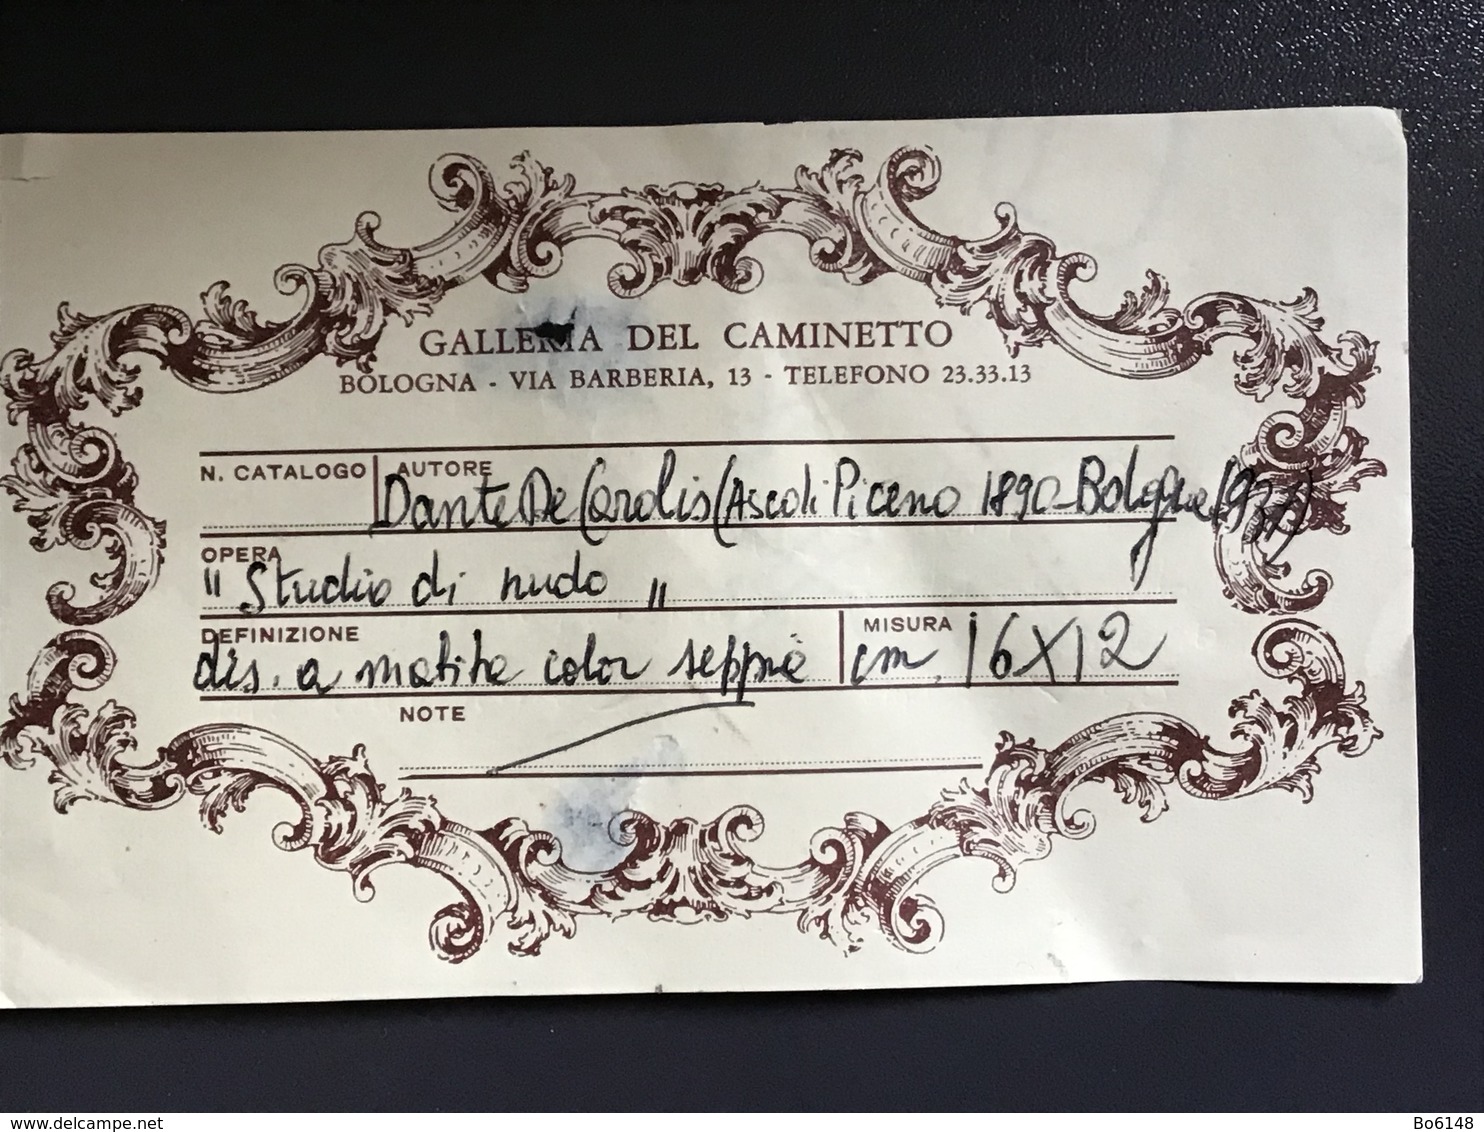 GALLERIA DEL CAMINETTO
BOLOGNA - VIA BARBERIA, 13 - TELEFONO 23.33.13
N. CATALOGO AUTORE
Dante De Carolis (Ascoli Piceno 1890-Bologna 1937)
OPERA
"Studio di nudo"
DEFINIZIONE MISURA
dis. a matita color seppia cm. 16x12
NOTE
delcampe.net
Bo6148